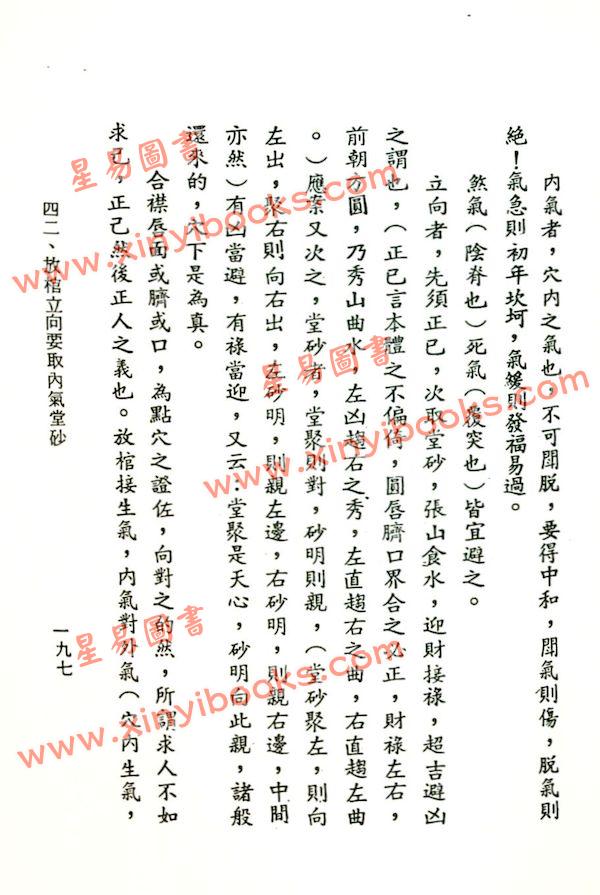 內氣者，穴內之氣也，不可閉脫，要得中和，閉氣則傷，脫氣則
絕！氣急則初年坎坷，氣緩則發福易過。
煞氣（陰脊也）死氣（覆突也）皆宜避之。
立向者，先須正已，次取堂砂，張山食水，迎財接祿，超吉避凶
之謂也，（正已言本體之不偏倚，圓唇臍口界合之必正，財祿左右，
前朝方圓，乃秀山曲水，左凶趨右之秀，左直趨右之曲，右直趨左曲
。）應案又次之，堂砂者，堂聚則對，砂明則親，（堂砂聚左，則向
左出，聚右則向右出，左砂明，則親左邊，右砂明，則親右邊，中間
亦然）有凶當避，有祿當迎，又云：堂聚是天心，砂明向此親，諸般
還來的，穴下是為真。
合襟唇面或臍或口，為點穴之證佐，向對之的然，所謂求人不如
求己，正己然後正人之義也。放棺接生氣，內氣對外氣（穴內生氣，
四二、放棺立向要取內氣堂砂
一九七
星易圖書
www.xinyibooks.com
星易圖書
www.xinyibooks.com
星易圖書
www.xinyibooks.com